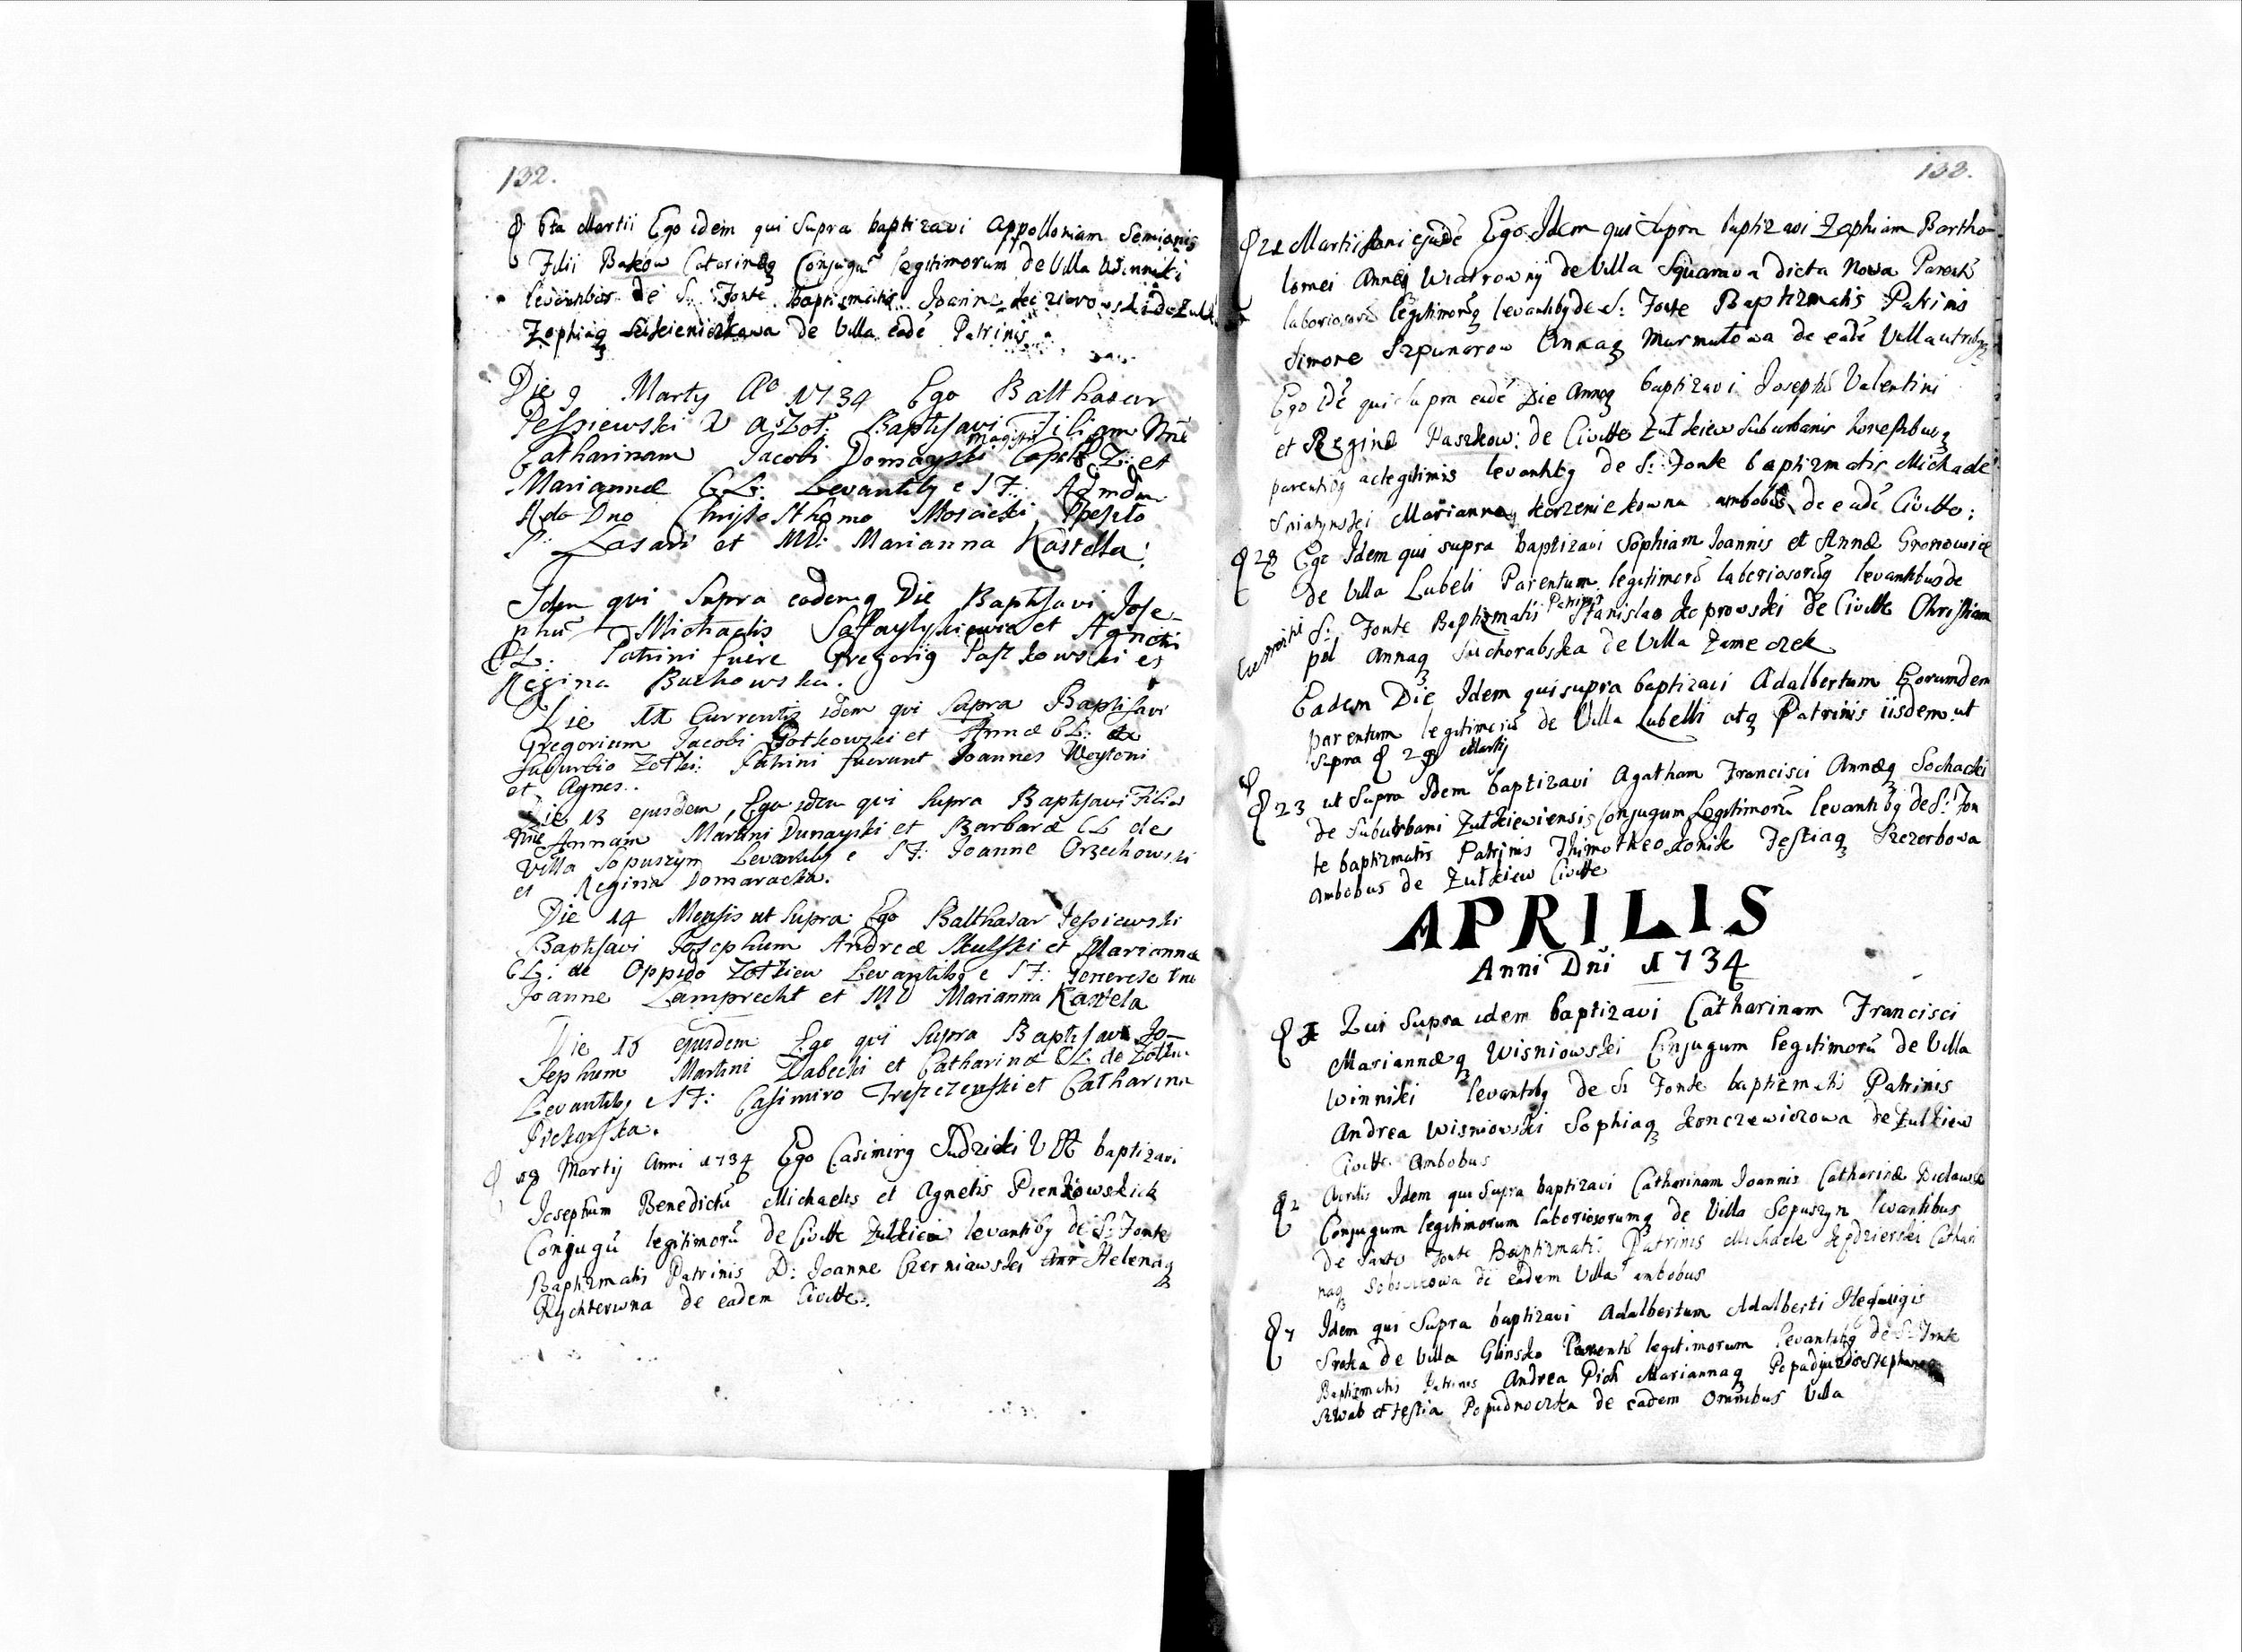 132.
6ta Martii Ego idem qui Supra baptizavi Appolloniam Semianis
Filii Bakow Catarinæq Conjugū legitimorum de Villa Winniki
levantibus de S. Fonte Baptismatis Joanne de Zulk
Zophiaq de Villa eadē Patrinis
Die 9 Marty Ao 1734 Ego Balthasar
Pessiewski V a Zoł: Baptisavi Filiam Nñe
Magistri
Catharinam Jacobi Domayski Capell Z: et
Mariannæ CL: Levantibq e S F: Admdm
Rdo Dno Christosthomo Mosaicki Ppesito
S: Lasari et MD: Marianna Kastella.
Idem qui Supra eademq Die Baptisavi Jose-
phū Michaelis et Agnetis
CL: Patrini fuere Gregoriq Paszkowski et
Regina Buchowska.
Die 11 Currentis idem qui Supra Baptisavi
Gregorium Jacobi Botkowski et Annæ CL: ex
Suburbio Zołki: Patrini fuerunt Joannes Weytoni
et Agnes.
Die 13 ejusdem, Ego idem qui Supra Baptisavi Filiā
Nñe Annam Martini Dunayski et Barbaræ CL de
Villa Sopuszyn Levantibq e S F: Joanne Orzechowski
et Regina Domaracka.
Die 14 Mensis ut Supra Ego Balthasar Pessiewski
Baptisavi Josephum Andreæ Skulski et Mariannæ
CL: de Oppido Zołkiew Levantibq e S F: Generoso Dno
Joanne Lamprecht et MD Marianna Kastela
Die 15 ejusdem Ego qui Supra Baptisavi Jo-
sephum Martini Zabecki et Catharinæ CL de Zołki
Levantibq e S F: Casimiro et Catharina
Piekarska.
18 Martij Anni 1734 Ego Casimirq Sudzicki baptizavi
Josephum Benedictū Michaelis et Agnetis Pienkowskich
Conjugū legitimorū de Civitte Zulkiew levantibq de S: Fonte
Baptizmatis Patrinis D: Joanne Czerniawski Helenaq
Rychterowna de eadem Civitte.
133.
21 Martii Ani ejusdē Ego Idem qui Supra baptizavi Zophiam Bartho-
lomei Annæq Wiatrowny de Villa Squarava dicta Nowa Parentū
laboriosorū legitimorūq levantibq de S: Fonte Baptizmatis Patrinis
Simone Szpunarow Annaq Murmułowa de eadē Villa utribq
Ego idē qui supra eadē Die Annoq baptizavi Josephū Valentini
et Reginæ Paszkow: de Civitte Zułkiew Suburbanis honestibusq
parentibq ac legitimis levantibq de S: Fonte baptizmatis Michaele
Sniatynski Mariannaq Korzeniekowna ambobus de eadē Civitte:
28 Ego Idem qui supra baptizavi Sophiam Joannis et Annæ Gronowicz
de Villa Lubeli Parentum legitimorū laboriosorūq levantibus de
Patrinis
S: Fonte Baptizmatis Stanislao Koprowski de Civitte Christiam
pol Annaq Suchorabska de Villa Zameczek
Gemini
Eadem Die Idem qui supra baptizavi Adalbertum Eorumdem
parentum legitimorū de Villa Lubelli atq Patrinis iisdem ut
Supra 28 Martij
23 ut Supra Idem baptizavi Agatham Francisci Annæq Sochacki
de Suburbani Zułkiewiensis Conjugum Legitimorū levantibq de S: Fon
te baptizmatis Patrinis Thimotheo Konik Festiaq Szczerbowa
Ambobus de Zułkiew Civitte
APRILIS
Anni Dñi 1734
1 Qui Supra idem baptizavi Catharinam Francisci
Mariannæq Wisniowski Conjugum legitimorū de Villa
Winniki levantibq de S: Fonte baptizmatis Patrinis
Andrea Wisniowski Sophiaq Konczewiczowa de Zulkiew
Civitte. Ambobus
2 Aprilis Idem qui Supra baptizavi Catharinam Joannis Catharinæ
Conjugum legitimorum laboriosorumq de Villa Sopuszyn levantibus
de Santo Fonte Baptizmatis Patrinis Michaele Kędzierski Cathari
naq de eadem Villa ambobus
7 Idem qui Supra baptizavi Adalbertum Adalberti Hedwigis
Sroka de Villa Glinsko Parentū legitimorum levantibq de S: Fonte
Baptizmatis Patrinis Andrea Pich Mariannaq Stephano
Szwab et Festia Popadnoczka de eadem Omnibus Villa